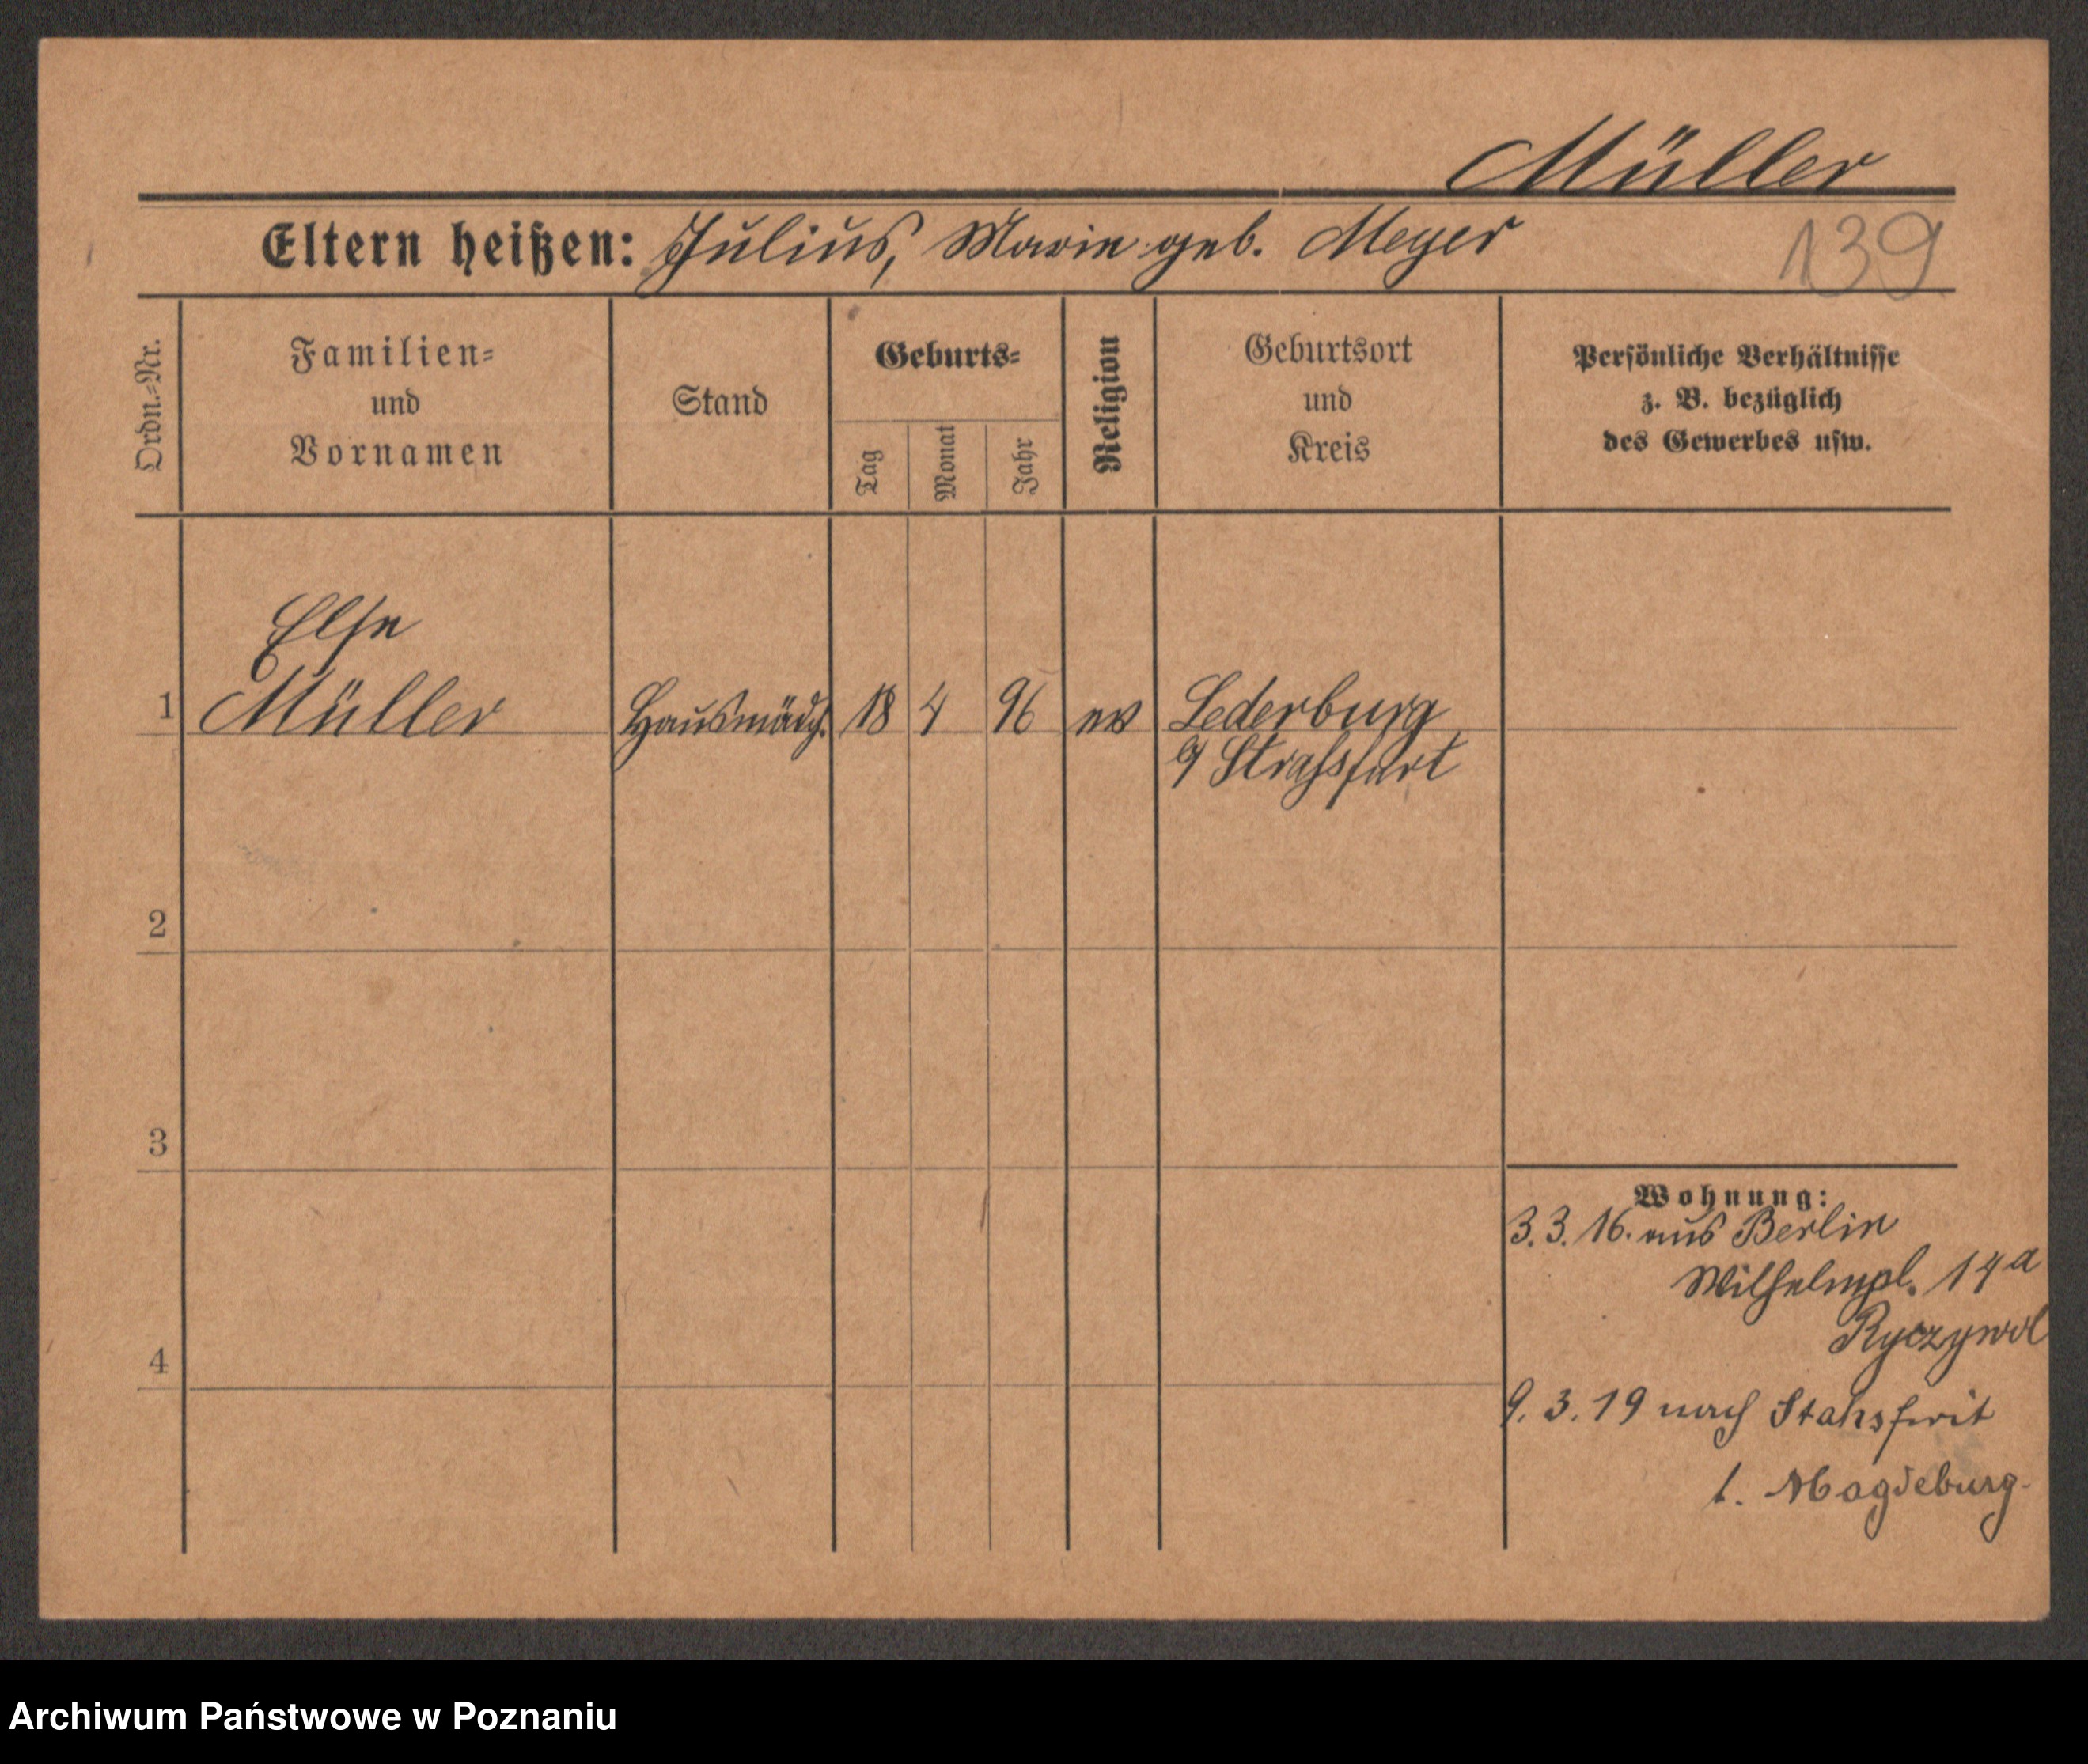 Müller
Eltern heißen: Julius, Marie geb. Meyer
139
Ordn.=Nr.
Familien=
und
Vornamen
Stand
Geburts=
Tag
Monat
Jahr
Religion
Geburtsort
und
Kreis
Persönliche Verhältnisse
z. B. bezüglich
des Gewerbes usw.
Else
1 Müller Hausmädch. 18 4 96 ev Lederburg
Strassfurt
2
3
4
Wohnung:
3.3.16. aus Berlin
Wilhelmpl. 14a
Ryczywol
9.3.19 nach
Magdeburg
Archiwum Państwowe w Poznaniu